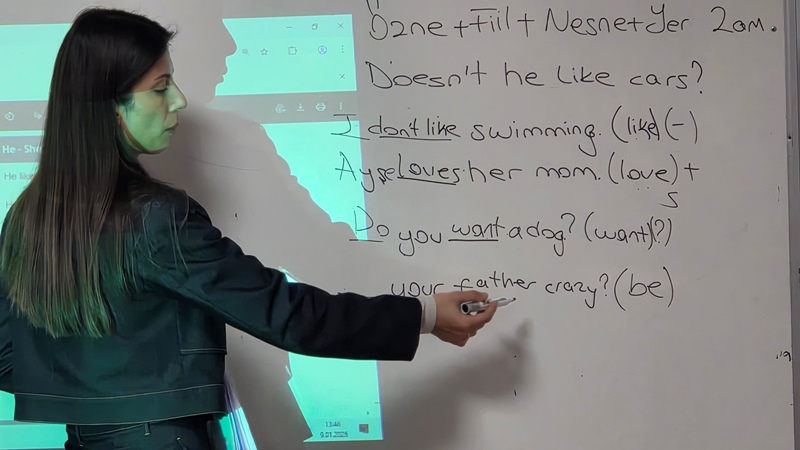 Özne + Fiil + Nesne + Yer Zam.
Doesn't he like cars?
I don't like swimming. (like) (-)
Ayşe Loves her mom. (love) +
s
Do you want a dog? (want) (?)
your father crazy? (be)
He - She
He like
13:46
9.01.2026